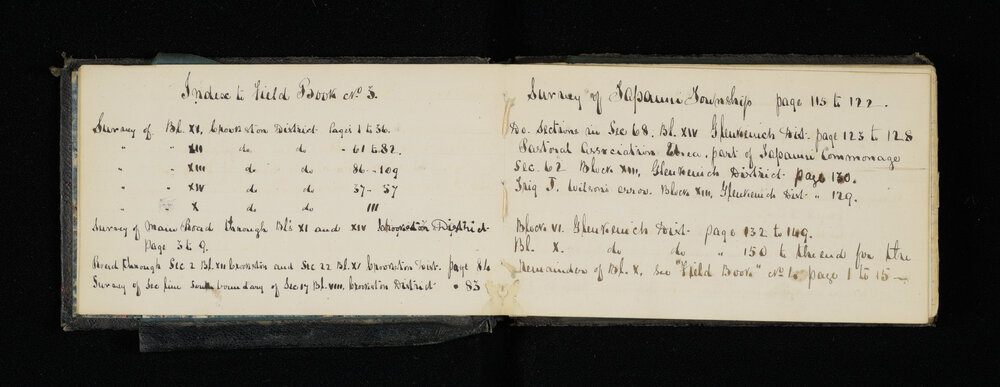 Index to Field Book No 3.
Survey of Bl. XI, Crookston District Pages 1 to 56.
" " XII do do " 61 to 82.
" " XIII do do 86 - 109
" " XIV do do 57 - 57
" " X do do III
Survey of Main Road through Bl's XI and XIV Crookston District
Page 3 to 9.
Road through Sec 2 Bl. XII Crookston and Sec 22 Bl. XI Crookston Dist. page 84
Survey of Sec line South boundary of Sec 17 Bl. VIII, Crookston District " 83
Survey of Tapanui Township page 115 to 122.
Do. Sections in Sec 68. Bl. XIV Glenkenich Dist. page 123 to 128
Pastoral Association Area, part of Tapanui Commonage
Sec. 62 Block XIII, Glenkenich District page 130.
Trig T. Wilson's error. Block XIII, Glenkenich Dist. " 129.
Block VI. Glenkenich Dist page 132 to 149.
Bl. X. do do " 150 to the end for the
Remainder of Bl. X, see "Field Book" No page 1 to 15 —